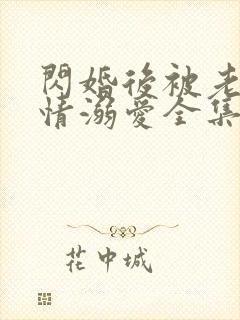 閃婚後被老
情溺愛全集
花中城